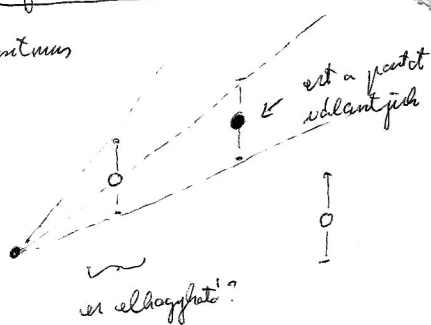 ezt a pontot
választjuk
ez elhagyható?